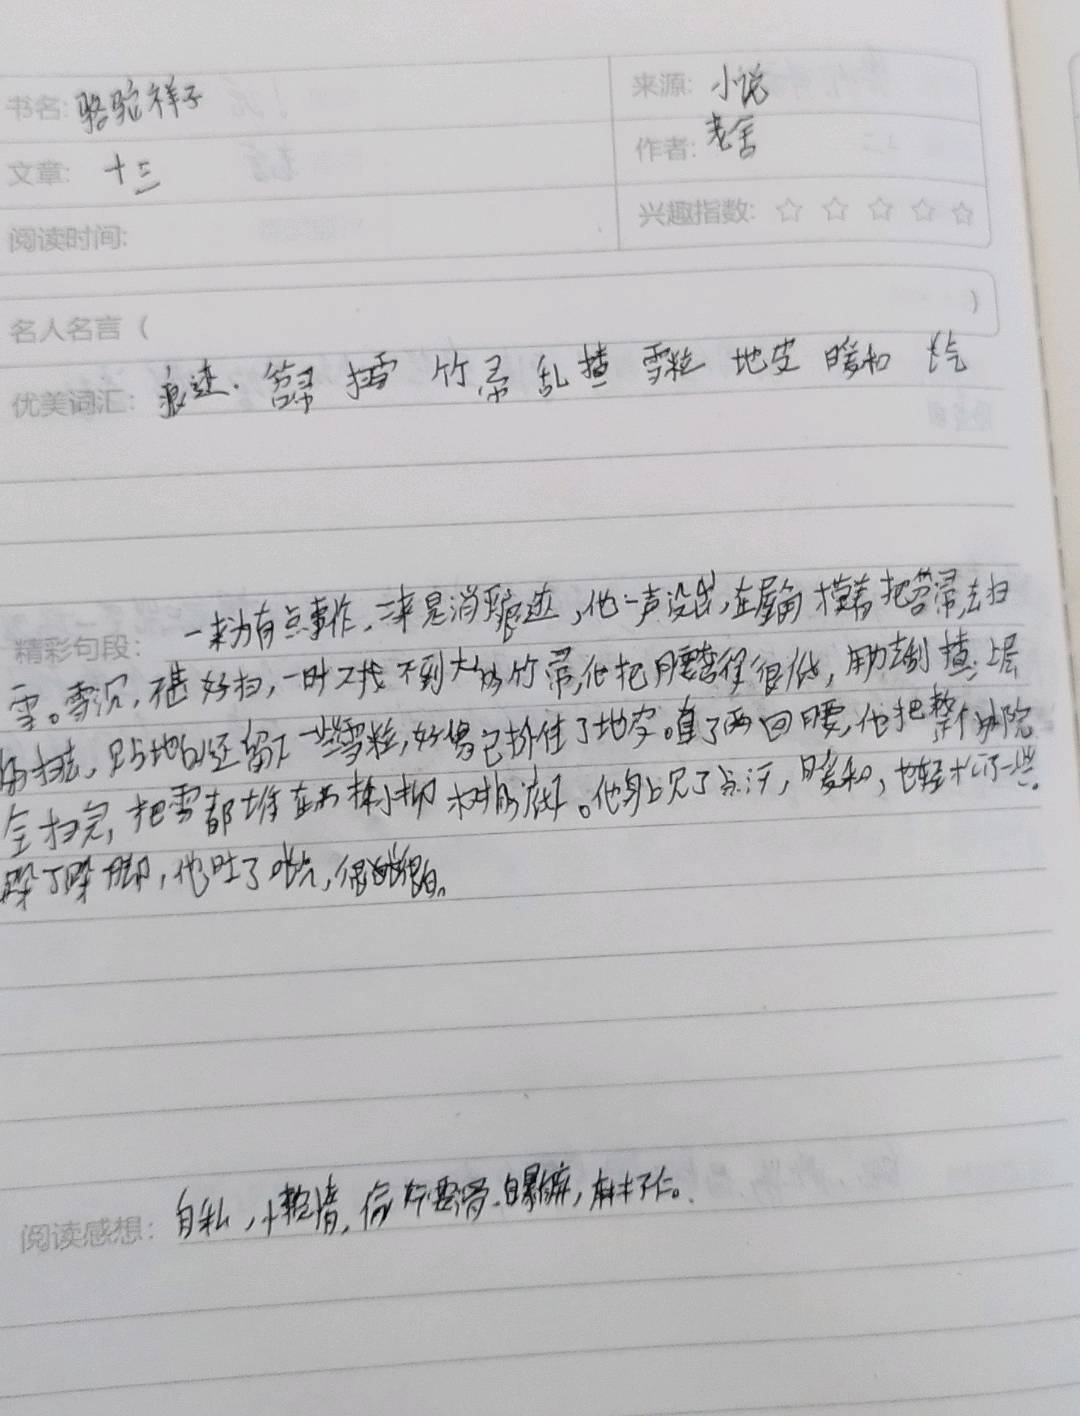 书名: 骆驼祥子
来源: 小说
文章: 十三
作者: 老舍
阅读时间:
兴趣指数: ☆ ☆ ☆ ☆ ☆
名人名言 ( )
优美词汇: 痕迹. 笤帚 扫雪 竹帚 乱揸 雪粒 地皮 暖和 长气
精彩句段: 一来为有点事作,二来是消灭痕迹,他一声没出,在屋角摸着把笤帚,去扫
雪。雪沉,不甚好扫,一时又找不到大的竹帚,他把腰弯得很低,用力去刮揸;上层
的扫去,贴地的还留下一些雪粒,好像已抓住了地皮。直了两回腰,他把整个外院
全扫完,把雪都堆在两株小柳树的底下。他身上见了点汗,暖和,也轻松了一些.
跺了跺脚,他吐了口长气,很长很白。
阅读感想: 自私,小